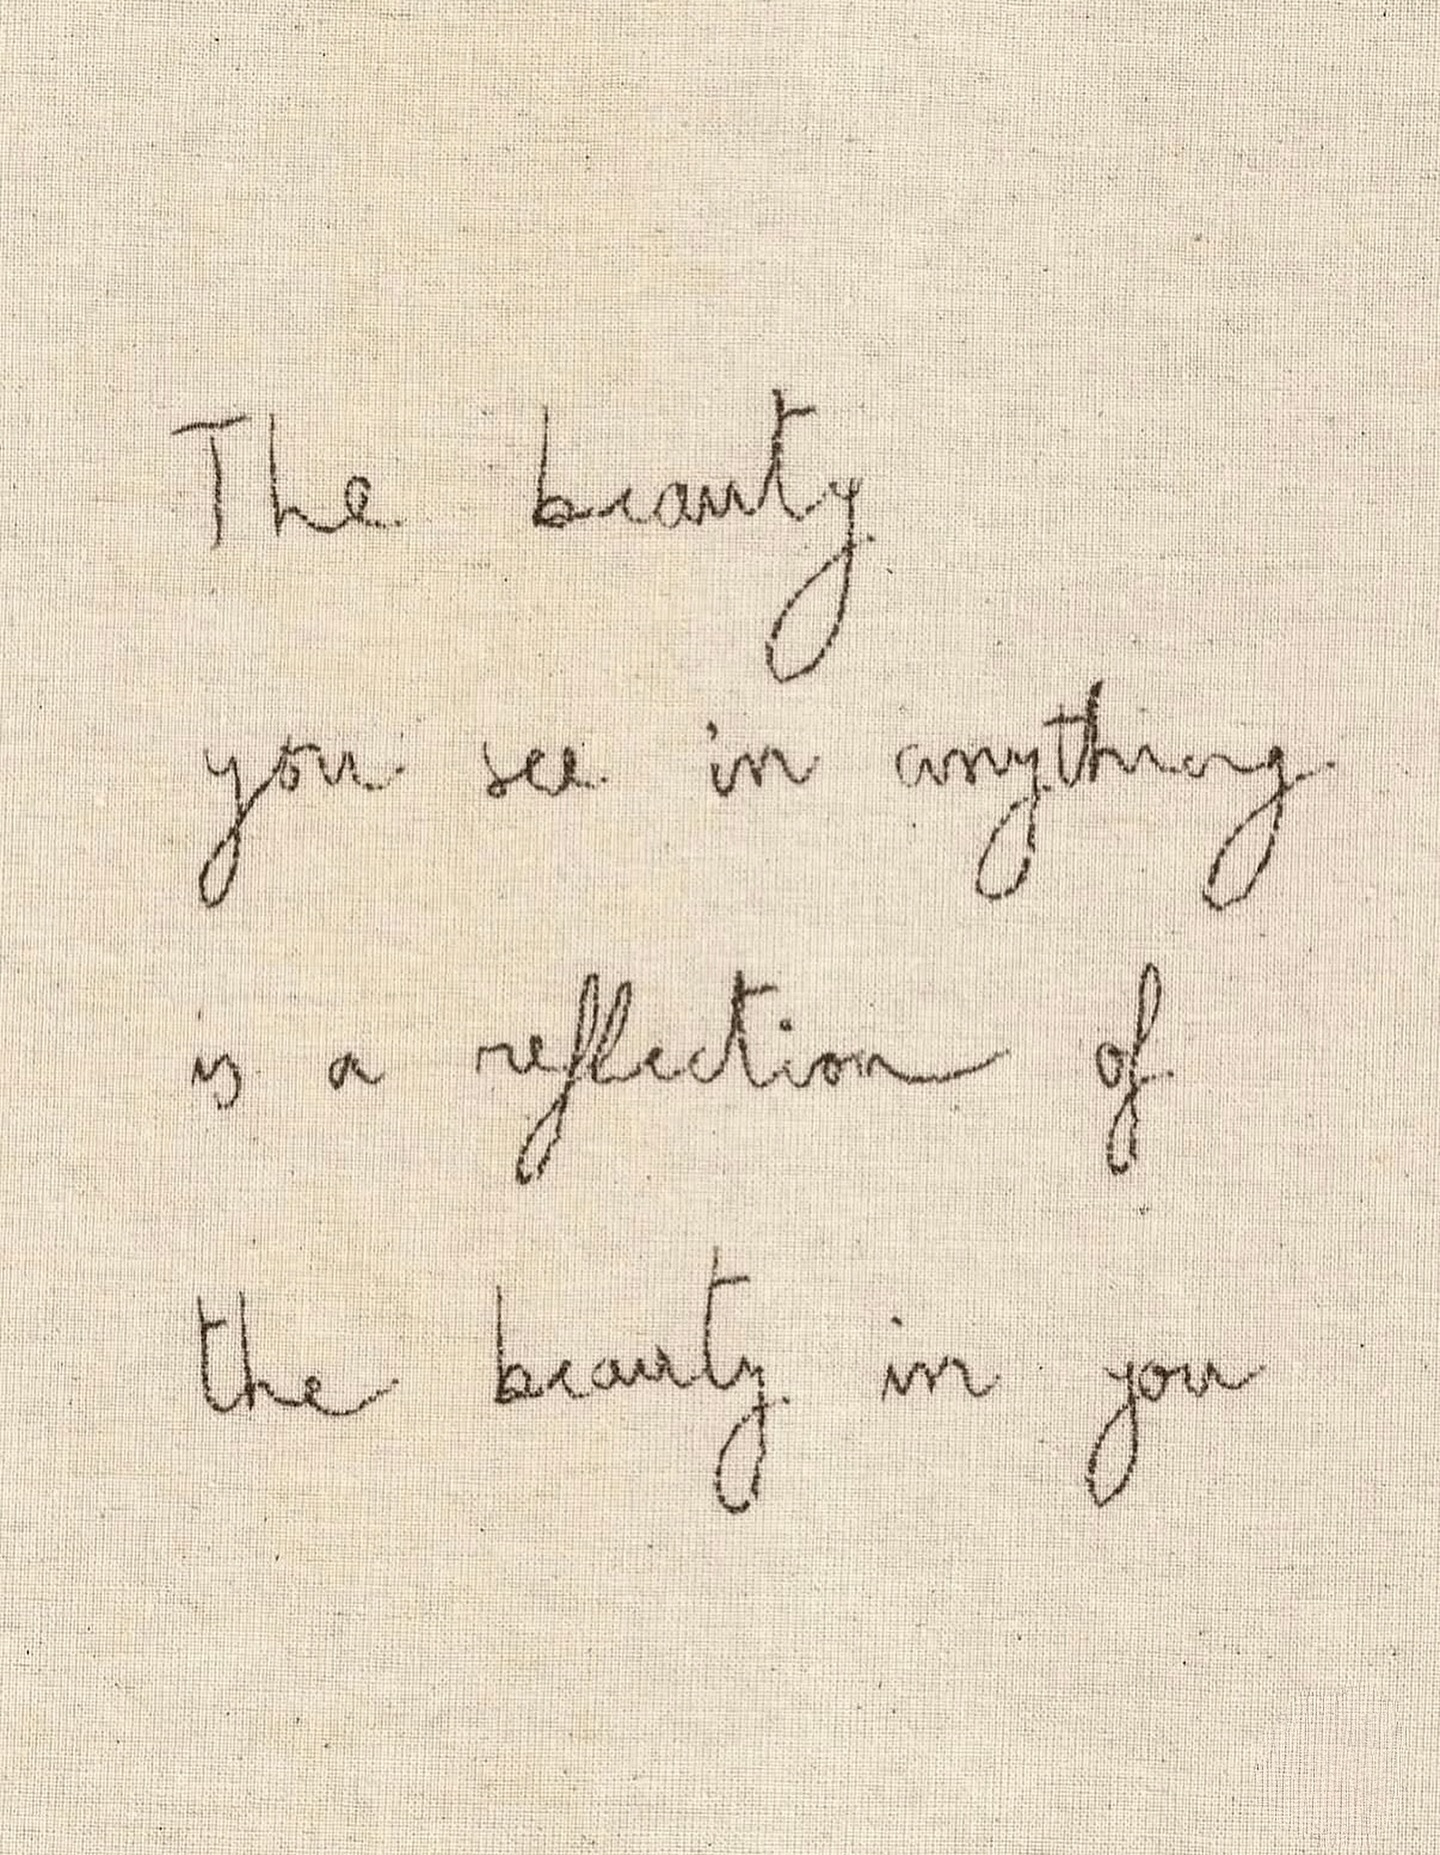 The beauty
you see in anything
is a reflection of
the beauty in you